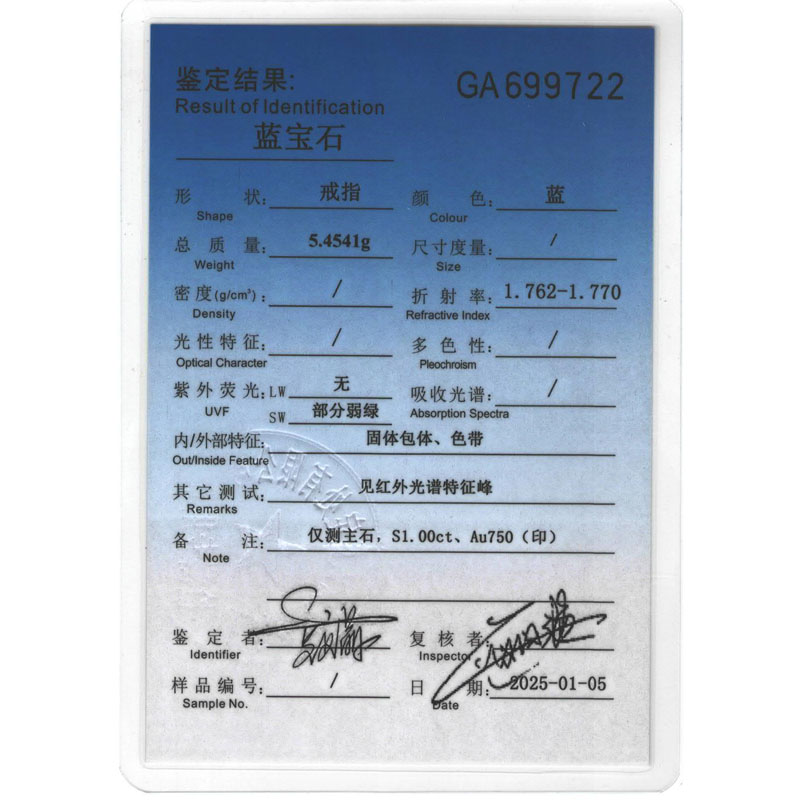 鉴定结果:
GA699722
Result of Identification
蓝宝石
形 状: 戒指 颜 色: 蓝
Shape Colour
总 质 量: 5.4541g 尺寸度量: /
Weight Size
密度(g/cm³): / 折 射 率: 1.762-1.770
Density Refractive Index
光性特征: / 多 色 性: /
Optical Character Pleochroism
紫外荧光: LW 无 吸收光谱: /
UVF SW 部分弱绿 Absorption Spectra
内/外部特征: 固体包体、色带
Out/Inside Feature
其它测试: 见红外光谱特征峰
Remarks
备 注: 仅测主石, S1.00ct、Au750（印）
Note
鉴 定 者: 复 核 者:
Identifier Inspector
样品编号: / 日 期: 2025-01-05
Sample No. Date